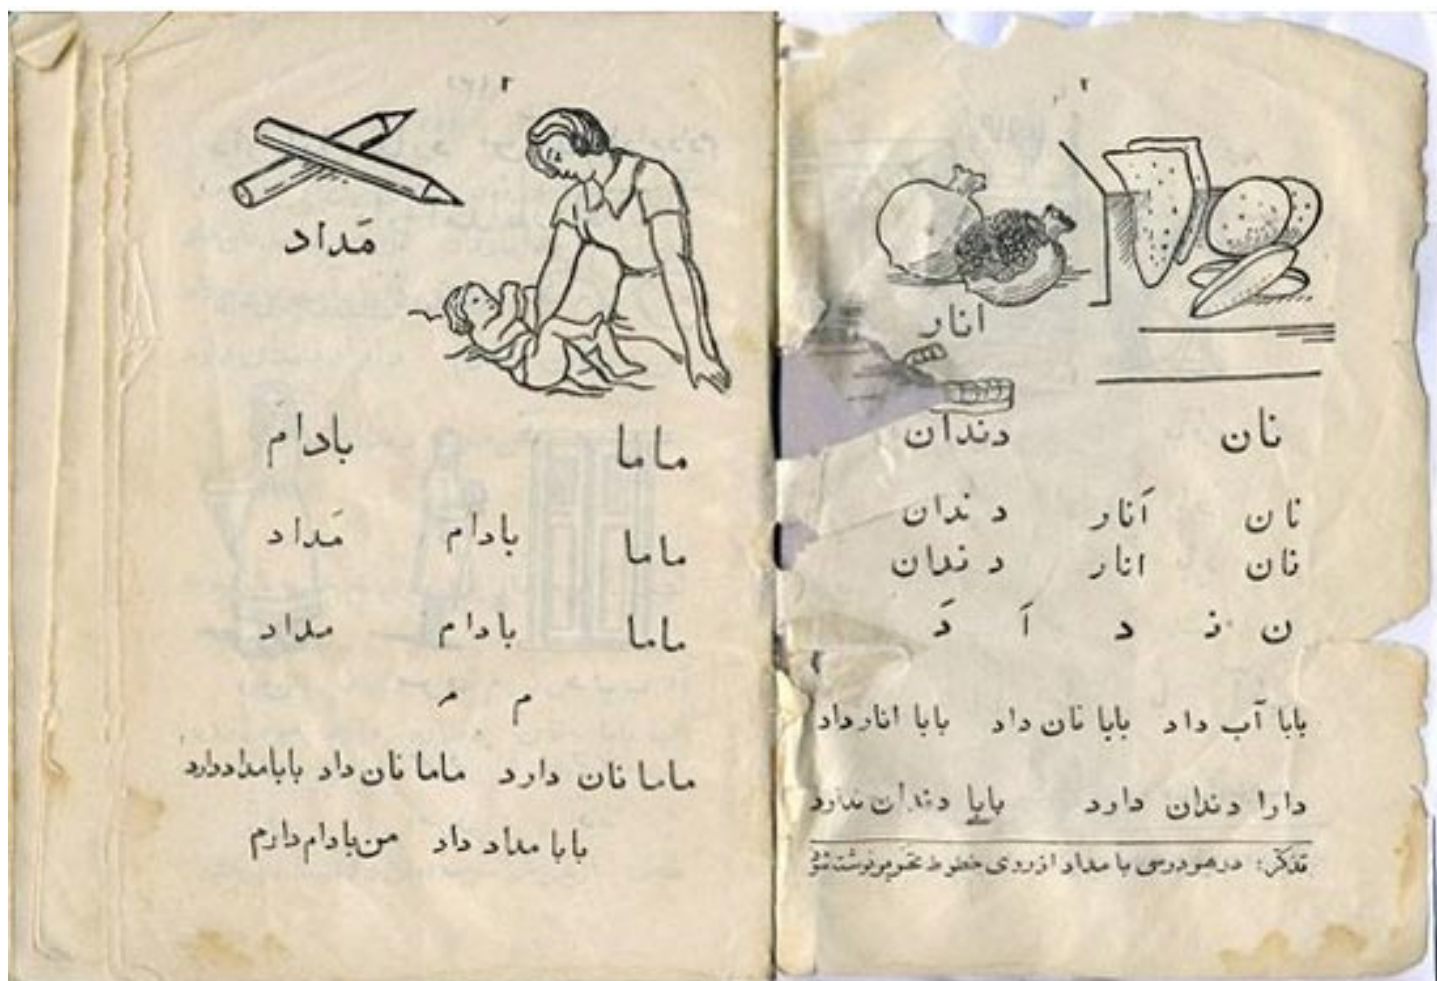 ۲
انار
نان دندان
نان اَنار دندان
نان انار دندان
ن نـ د اَ دَ
بابا آب داد بابا نان داد بابا انار داد
دارا دندان دارد بابا دندان ندارد
تذکّر: در هر درسی با مداد از روی خطوط نوشته شود
مَداد
ماما بادام
ماما بادام مَداد
ماما بادام مداد
م مـ
ماما نان دارد ماما نان داد بابا مداد دارد
بابا مداد داد من بادام دارم